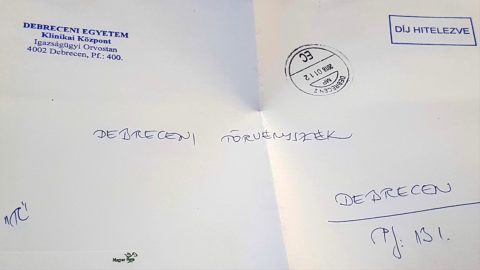 DEBRECENI EGYETEM
Klinikai Központ
Igazságügyi Orvostan
4002 Debrecen, Pf.: 400.
DÍJ HITELEZVE
DEBRECEN 2
MP
2018 01 12
EC
DEBRECENI TÖRVÉNYSZÉK
DEBRECEN
Pf: 131.
Magyar